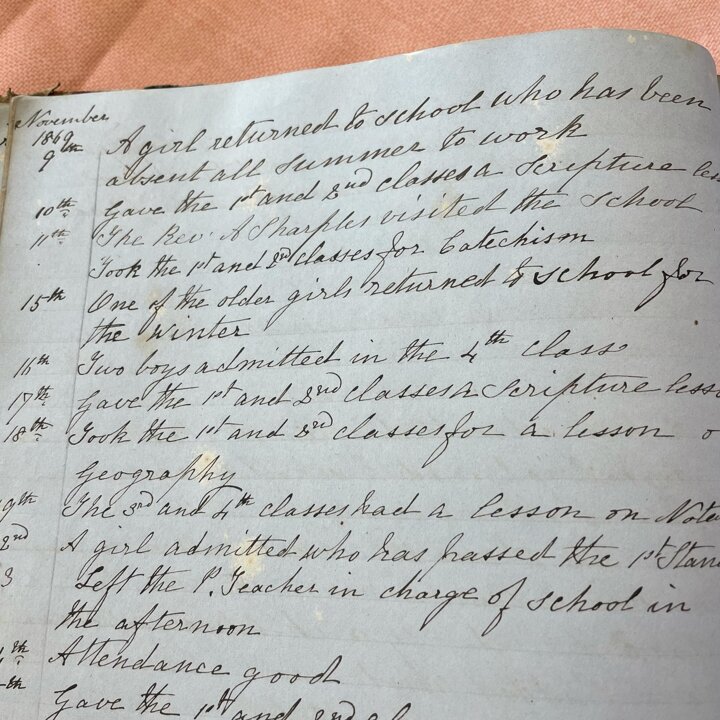 November
1869
9th A girl returned to school who has been
absent all summer to work
10th Gave the 1st and 2nd classes a Scripture les
11th The Rev. A Sharples visited the School
Took the 1st and 2nd classes for Catechism
15th One of the older girls returned to school for
the Winter
16th Two boys admitted in the 4th class
17th Gave the 1st and 2nd classes a Scripture less
18th Took the 1st and 2nd classes for a lesson o
Geography
9th The 3rd and 4th classes had a lesson on Note
2nd A girl admitted who has passed the 1st Stan
3 Left the P. Teacher in charge of school in
the afternoon
th Attendance good
th Gave the 1st and 2nd cl